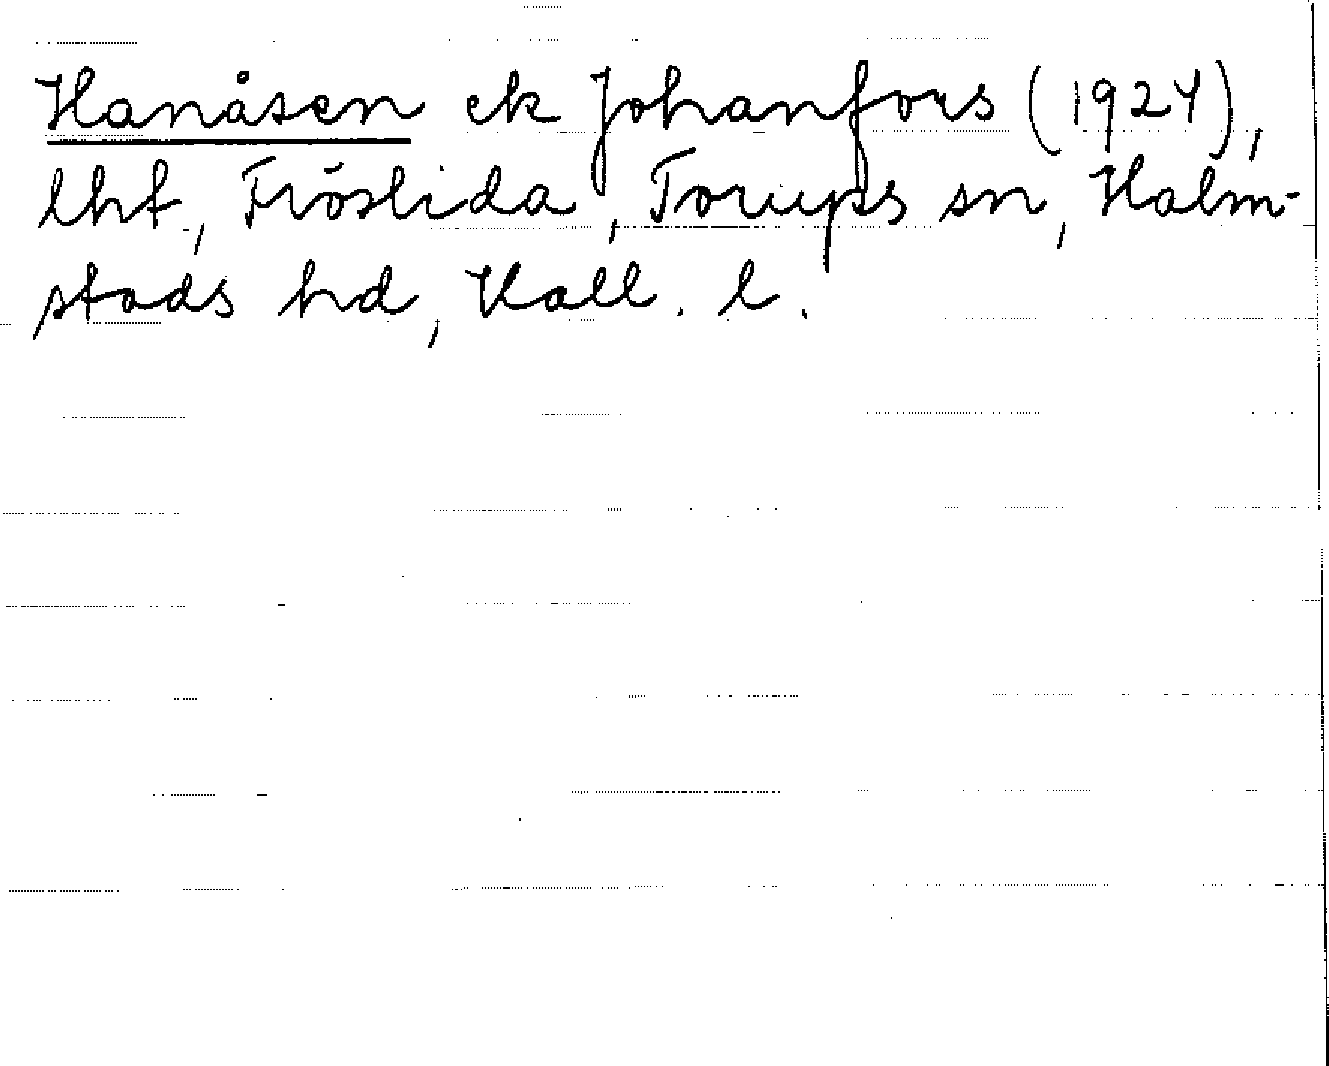 Hanåsen ek Johanfors (1924),
lht, Fröslida, Torups sn, Halm-
stads hd, Hall. l.